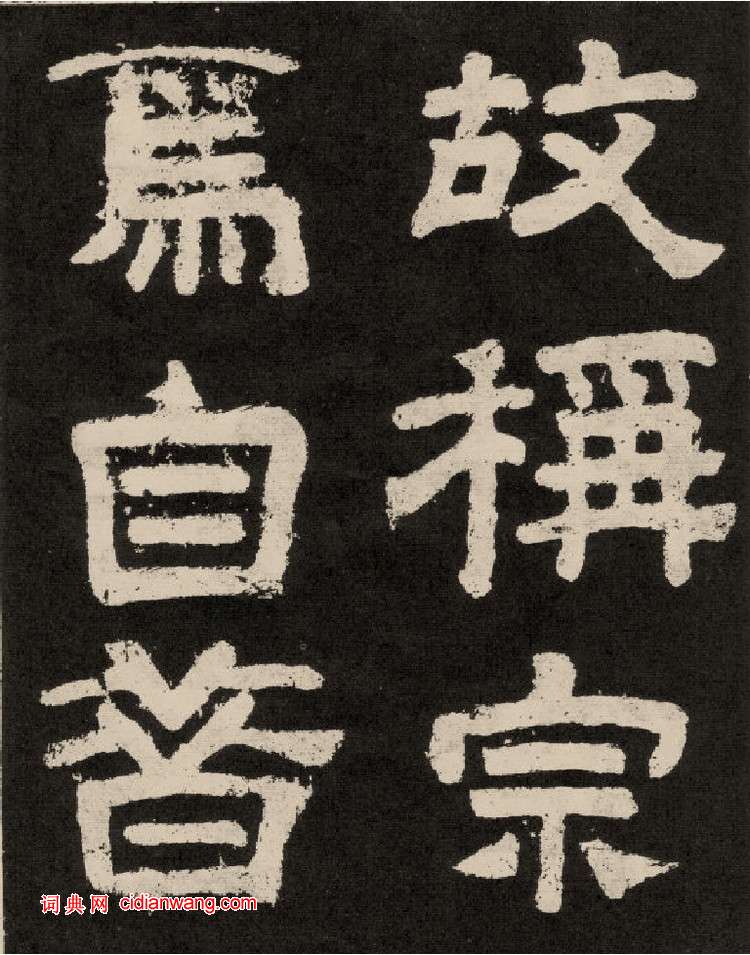 故稱宗
焉自昔
词典网 cidianwang.com